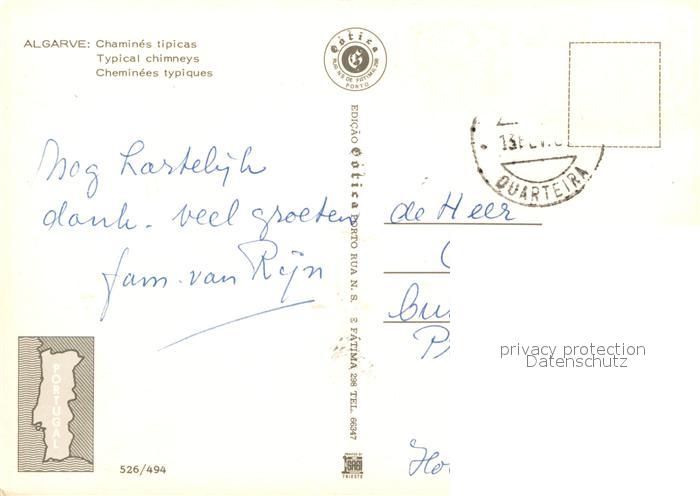 ALGARVE: Chaminés tipicas
Typical chimneys
Cheminées typiques
Gótica
RUA N.S. DE FATIMA 298
PORTO
13 FEV.
QUARTEIRA
Nog hartelijk
dank. veel groeten
fam. van Rijn
EDIÇÃO Gótica PORTO RUA N. S. E FÁTIMA 298 TEL. 66347
de Heer
privacy protection
Datenschutz
PORTUGAL
526/494
PRINTED BY
TRIESTE